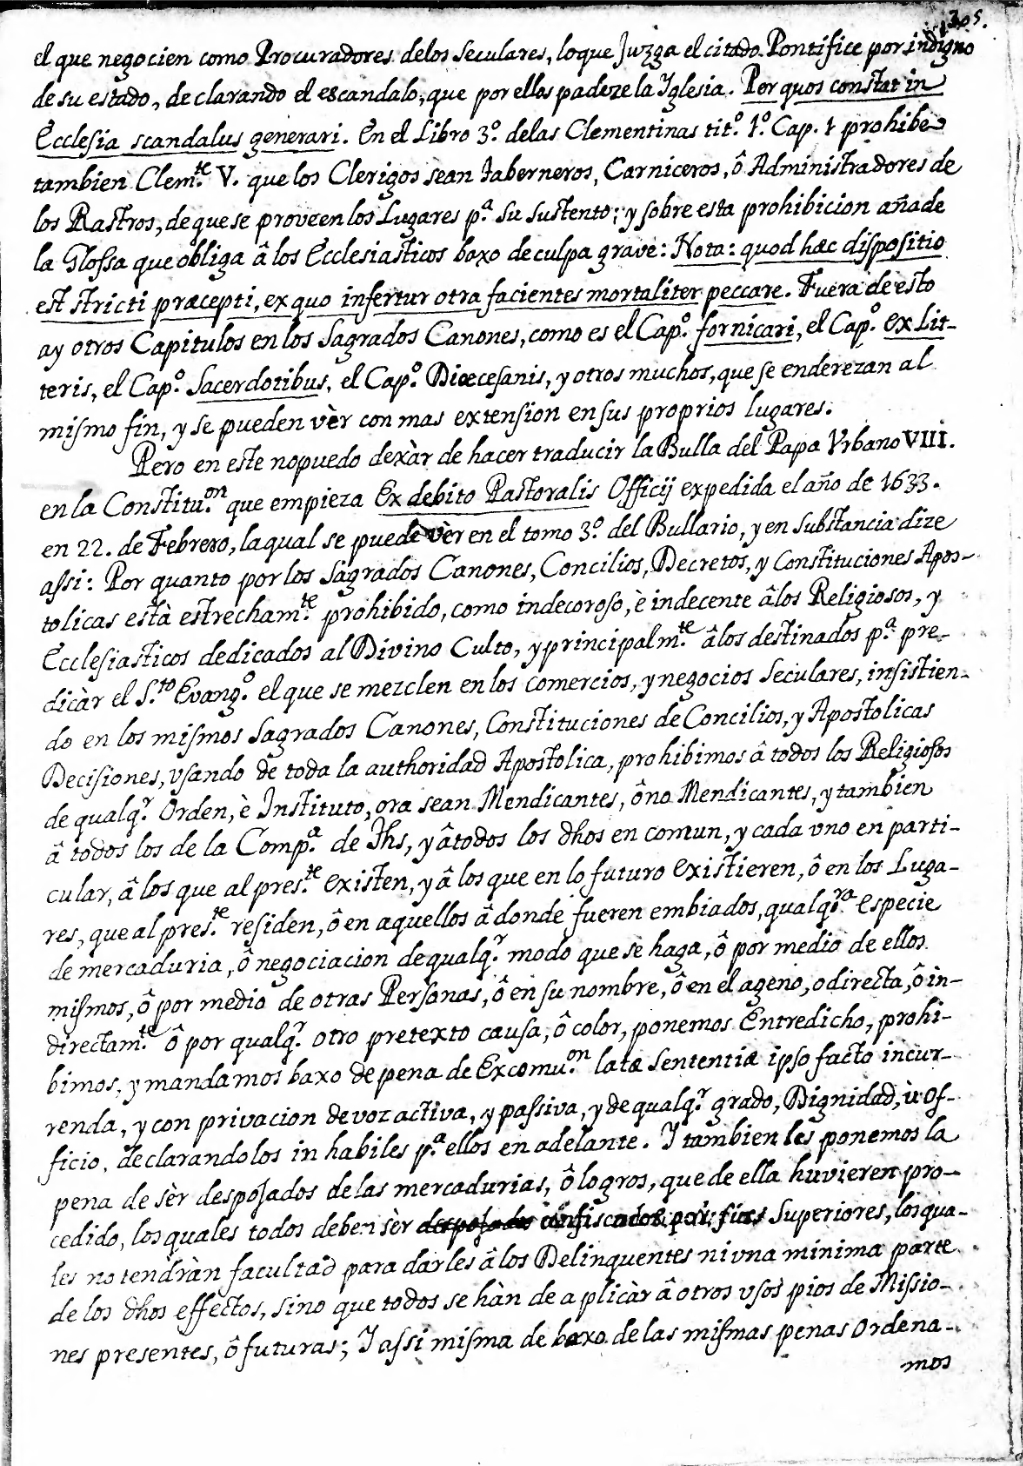 305.
el que negocien como Procuradores delos seculares, loque Juzga el citado Pontifice por indigno
de su estado, declarando el escandalo, que por ellos padeze la Iglesia. Per quos constat in
Ecclesia scandalus generari. En el Libro 3º. delas Clementinas titº. 1º. Cap. 1 prohibe
tambien Clemte. V. que los Clerigos sean Taberneros, Carniceros, ô Administradores de
los Rastros, de que se proveen los Lugares pª. su sustento; y sobre esta prohibicion añade
la Glossa que obliga â los Ecclesiasticos baxo de culpa grave: Nota: quod hæc dispositio
est stricti præcepti, ex quo infertur otra facientes mortaliter peccare. Fuera de esto
ay otros Capitulos en los Sagrados Canones, como es el Capº. fornicari, el Capº. Ex Lit-
teris, el Capº. Sacerdotibus, el Capº. Diæcesanis, y otros muchos, que se enderezan al
mismo fin, y se pueden vèr con mas extension en sus proprios lugares.
Pero en este nopuedo dexàr de hacer traducir la Bulla del Papa Vrbano VIII.
en la Constituon. que empieza Ex debito Pastoralis Officij expedida el año de 1633.
en 22. de Febrero, laqual se puede vèr en el tomo 3º. del Bullario, y en substancia dize
assi: Por quanto por los Sagrados Canones, Concilios, Decretos, y Constituciones Apos-
tolicas està estrechamte. prohibido, como indecoroso, è indecente âlos Religiosos, y
Ecclesiasticos dedicados al Divino Culto, y principalmte. âlos destinados pª. pre-
dicàr el Sto. Evango. el que se mezclen en los comercios, y negocios Seculares, insistien-
do en los mismos Sagrados Canones, Constituciones de Concilios, y Apostolicas
Decisiones, vsando de toda la authoridad Apostolica, prohibimos â todos los Religiosos
de qualqr. Orden, è Instituto, ora sean Mendicantes, ô no Mendicantes, y tambien
â todos los de la Compª. de Jhs, y âtodos los dhos en comun, y cada vno en parti-
cular, â los que al preste. existen, y â los que en lo futuro existieren, ô en los Luga-
res, que al preste. residen, ô en aquellos â donde fueren embiados, qualqra. especie
de mercaduria, ô negociacion de qualqr. modo que se haga, ô por medio de ellos
mismos, ô por medio de otras Personas, ô en su nombre, ô en el ageno, o directa, ô in-
directamte. ô por qualqr. otro pretexto causa, ô color, ponemos Entredicho, prohi-
bimos, y mandamos baxo de pena de Excomuon. latæ sententiæ ipso facto incur-
renda, y con privacion de voz activa, y passiva, y de qualqr. grado, Dignidad, ù Of-
ficio, declarandolos inhabiles pª. ellos en adelante. Y tambien les ponemos la
pena de sèr despojados de las mercadurias, ô logros, que de ella huvieren pro-
cedido, los quales todos deben sèr confiscados por sus Superiores, los qua-
les no tendràn facultad para darles â los Delinquentes ni vna minima parte
de los dhos effectos, sino que todos se hàn de aplicàr â otros vsos pios de Missio-
nes presentes, ô futuras; Y assi misma de baxo de las mismas penas Ordena-
mos